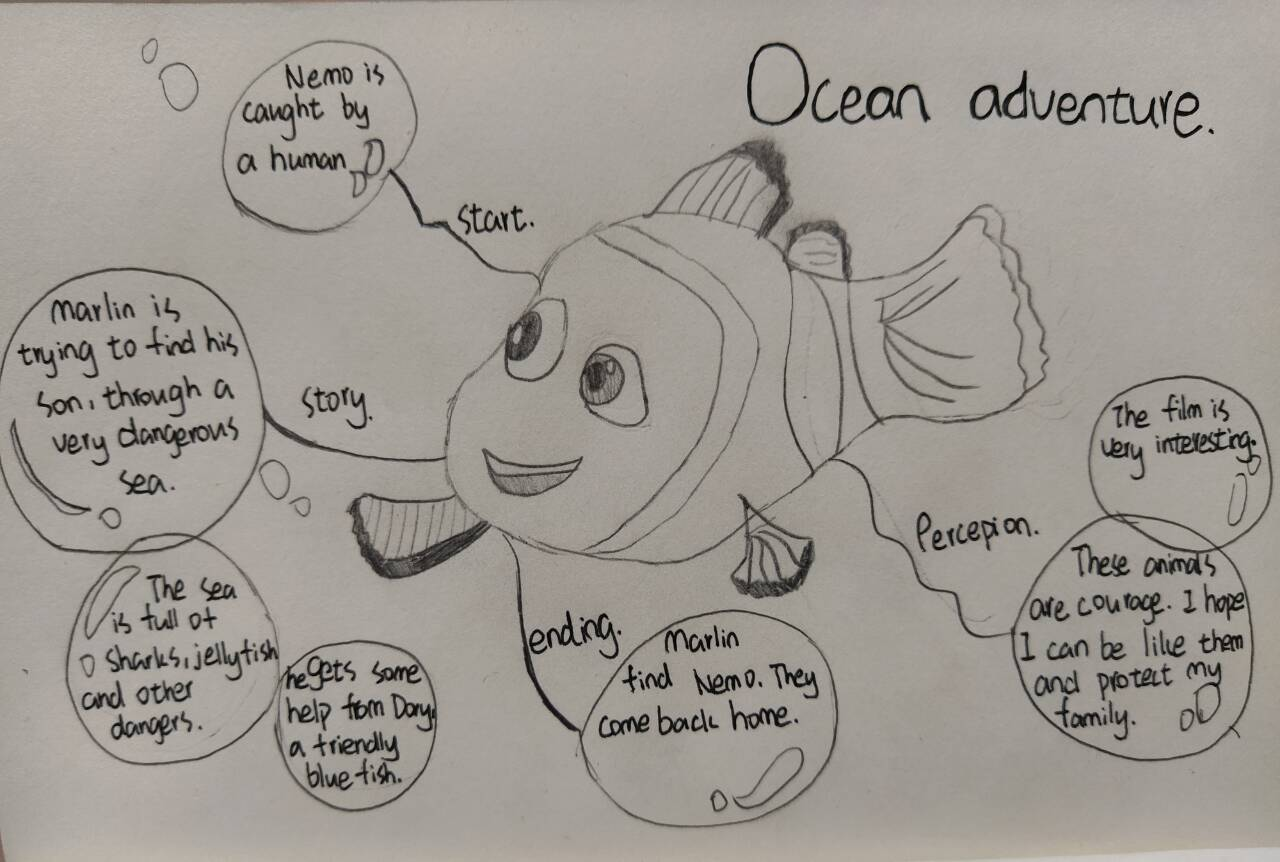 Ocean adventure.
Nemo is
caught by
a human
start.
Marlin is
trying to find his
son, through a
very dangerous
sea.
story.
The sea
is full of
sharks, jellyfish
and other
dangers.
he gets some
help from Dory,
a friendly
blue fish.
ending.
Marlin
find Nemo. They
come back home.
Percepion.
The film is
very interesting.
These animals
are courage. I hope
I can be like them
and protect my
family.